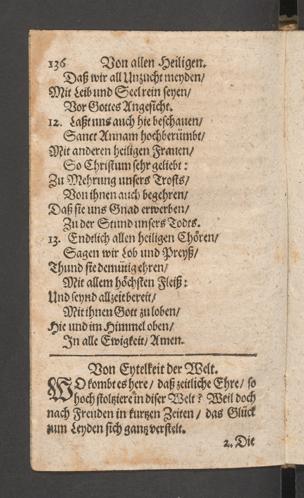 136 Von allen Heiligen.
Daß wir all Unzucht meyden/
Mit Leib und Seel rein seyen/
Vor Gottes Angesicht.
12. Laßt uns auch hie beschauen/
Sanct Annam hochberümbt/
Mit anderen heiligen Frauen/
So Christum sehr geliebt:
Zu Mehrung unsers Trosts/
Von ihnen auch begehren/
Daß sie uns Gnad erwerben/
Zu der Stund unsers Todts.
13. Endtlich allen heiligen Chören/
Sagen wir Lob und Preyß/
Thund sie demütig ehren/
Mit allem höchsten Fleiß:
Und seynd allzeit bereit/
Mit ihnen Gott zu loben/
Hie und im Himmel oben/
In alle Ewigkeit/ Amen.
Von Eytelkeit der Welt.
WO kombt es here/ daß zeitliche Ehre/ so
hoch stoltziere in diser Welt? Weil doch
nach Freuden in kurtzen Zeiten/ das Glück
zum Leyden sich gantz verstelt.
2. Die